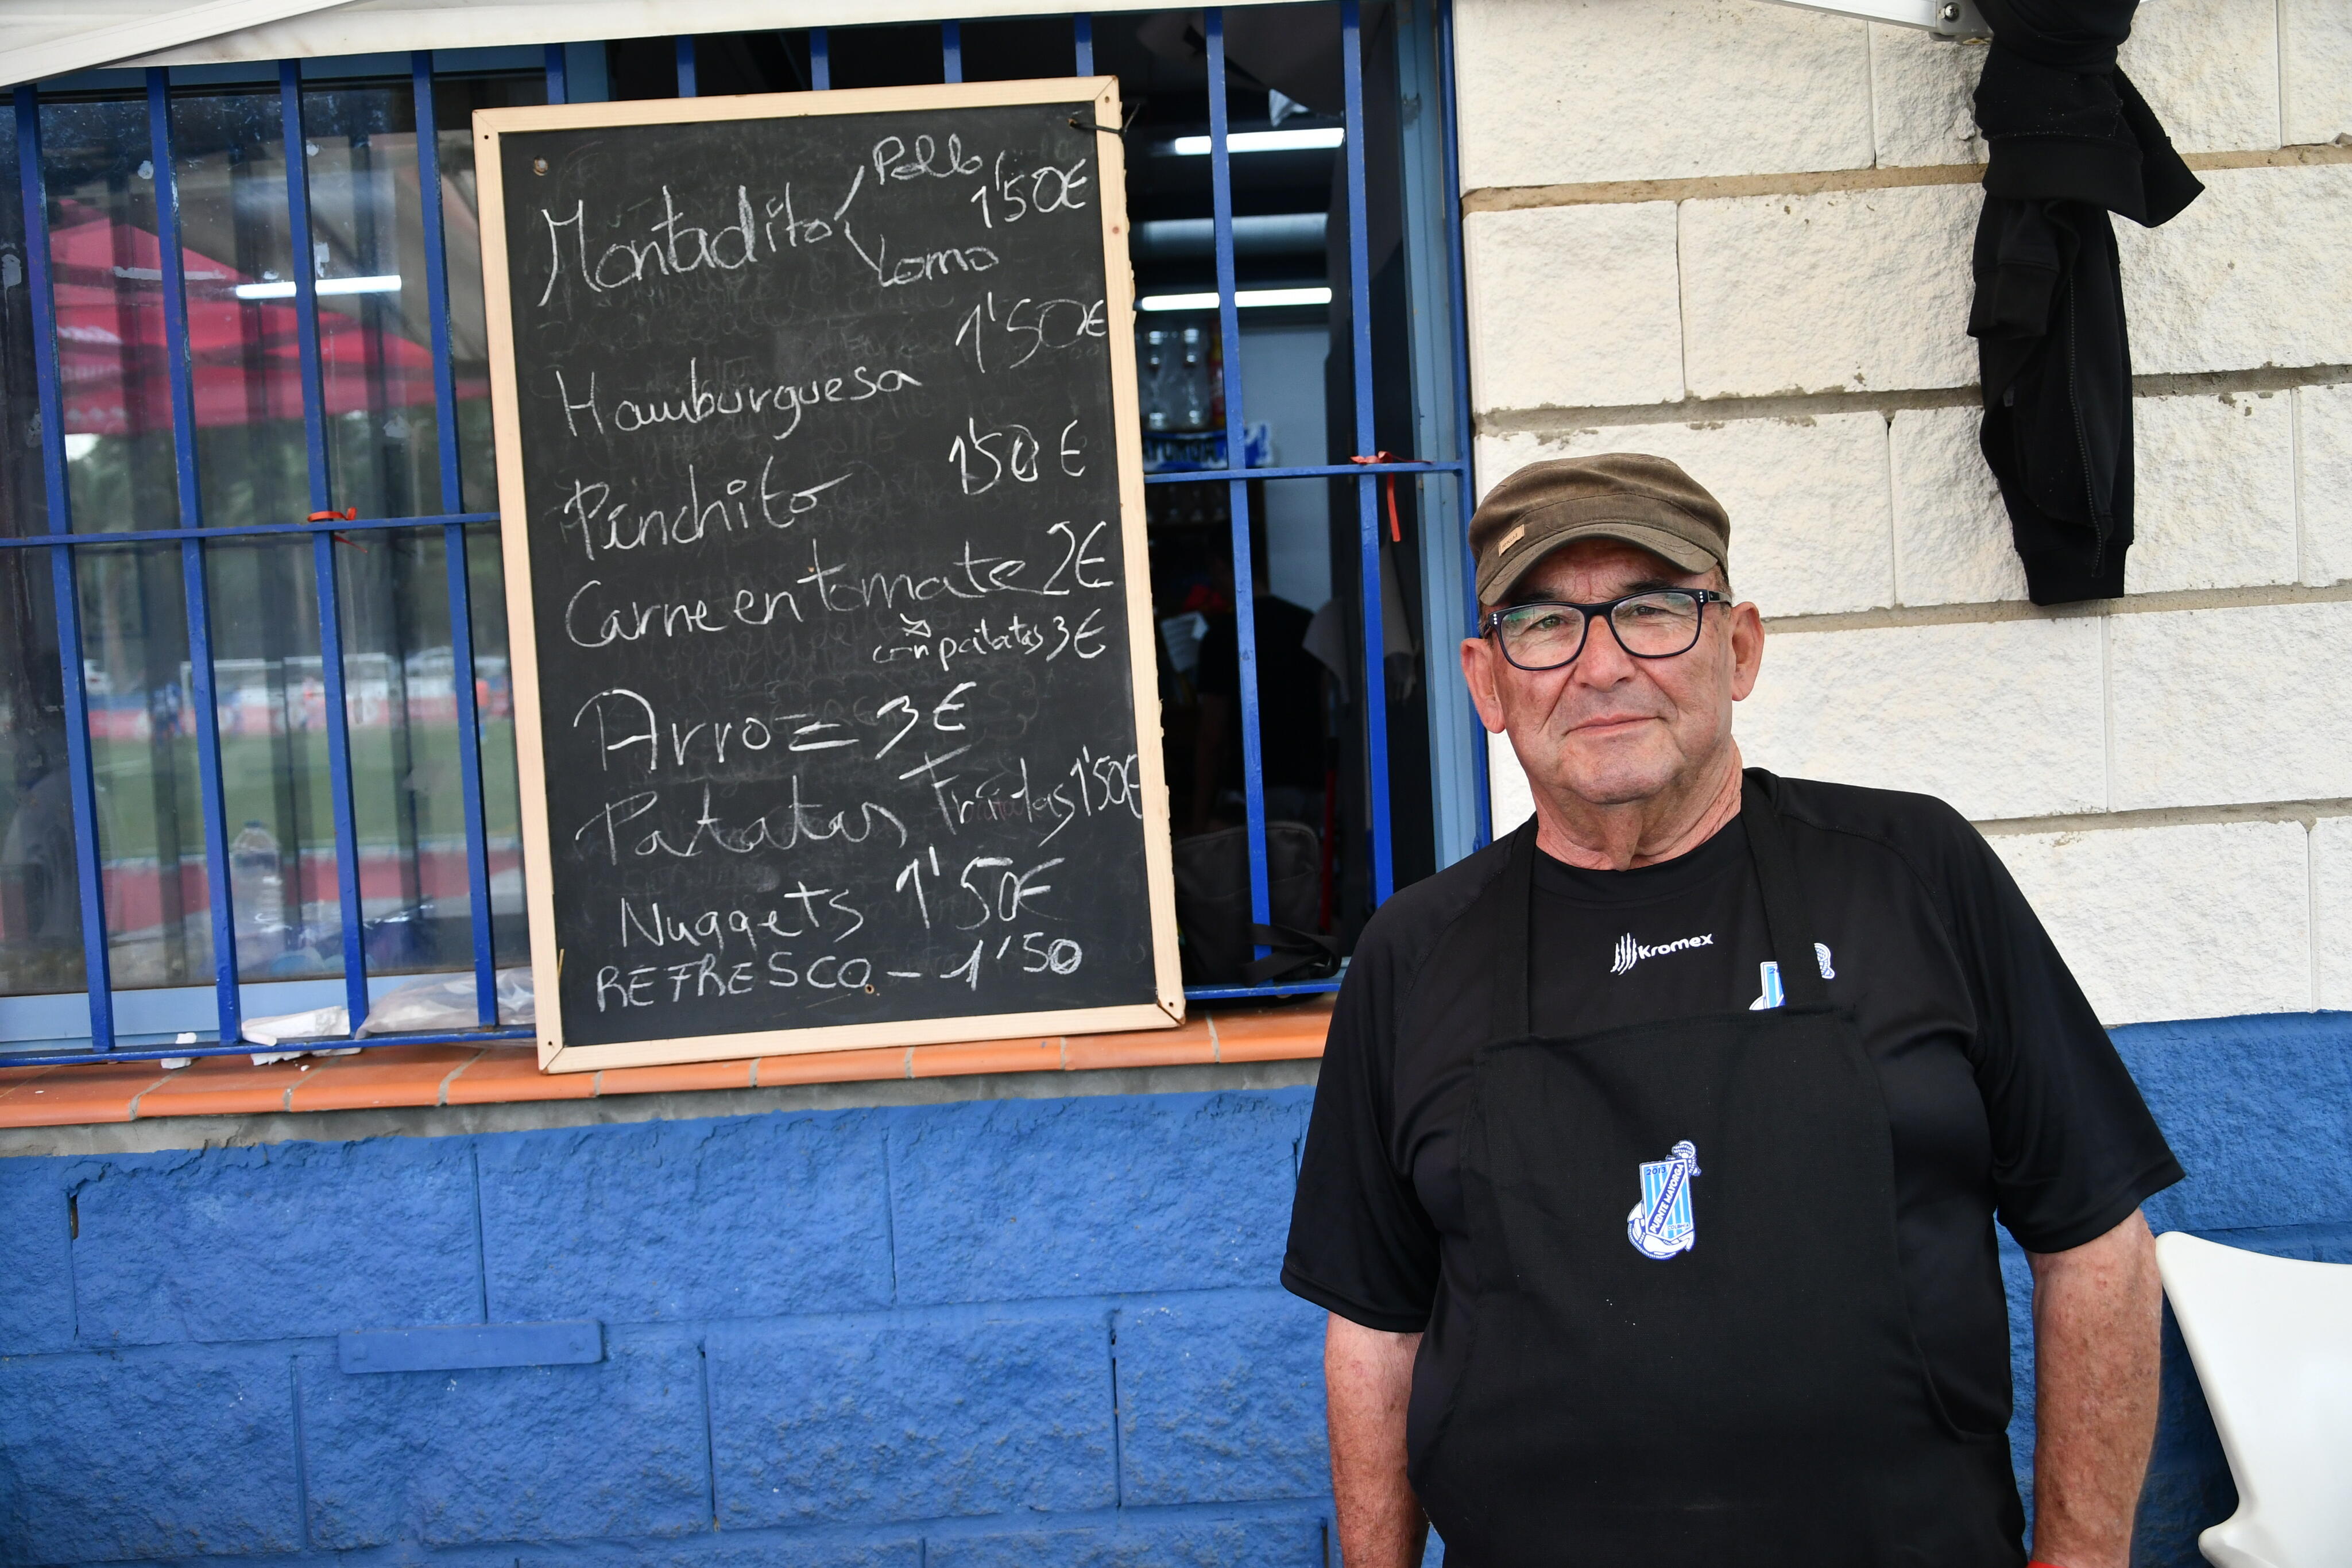 Pollo
Montadito 1'50€
Lomo
Hamburguesa 1'50€
Pinchito 1'50 €
Carne en tomate 2€
con patatas 3€
Arroz 3€
Patatas Fritas 1'50€
Nuggets 1'50€
REFRESCO - 1'50
Kromex
2013
PUENTE MAYORGA